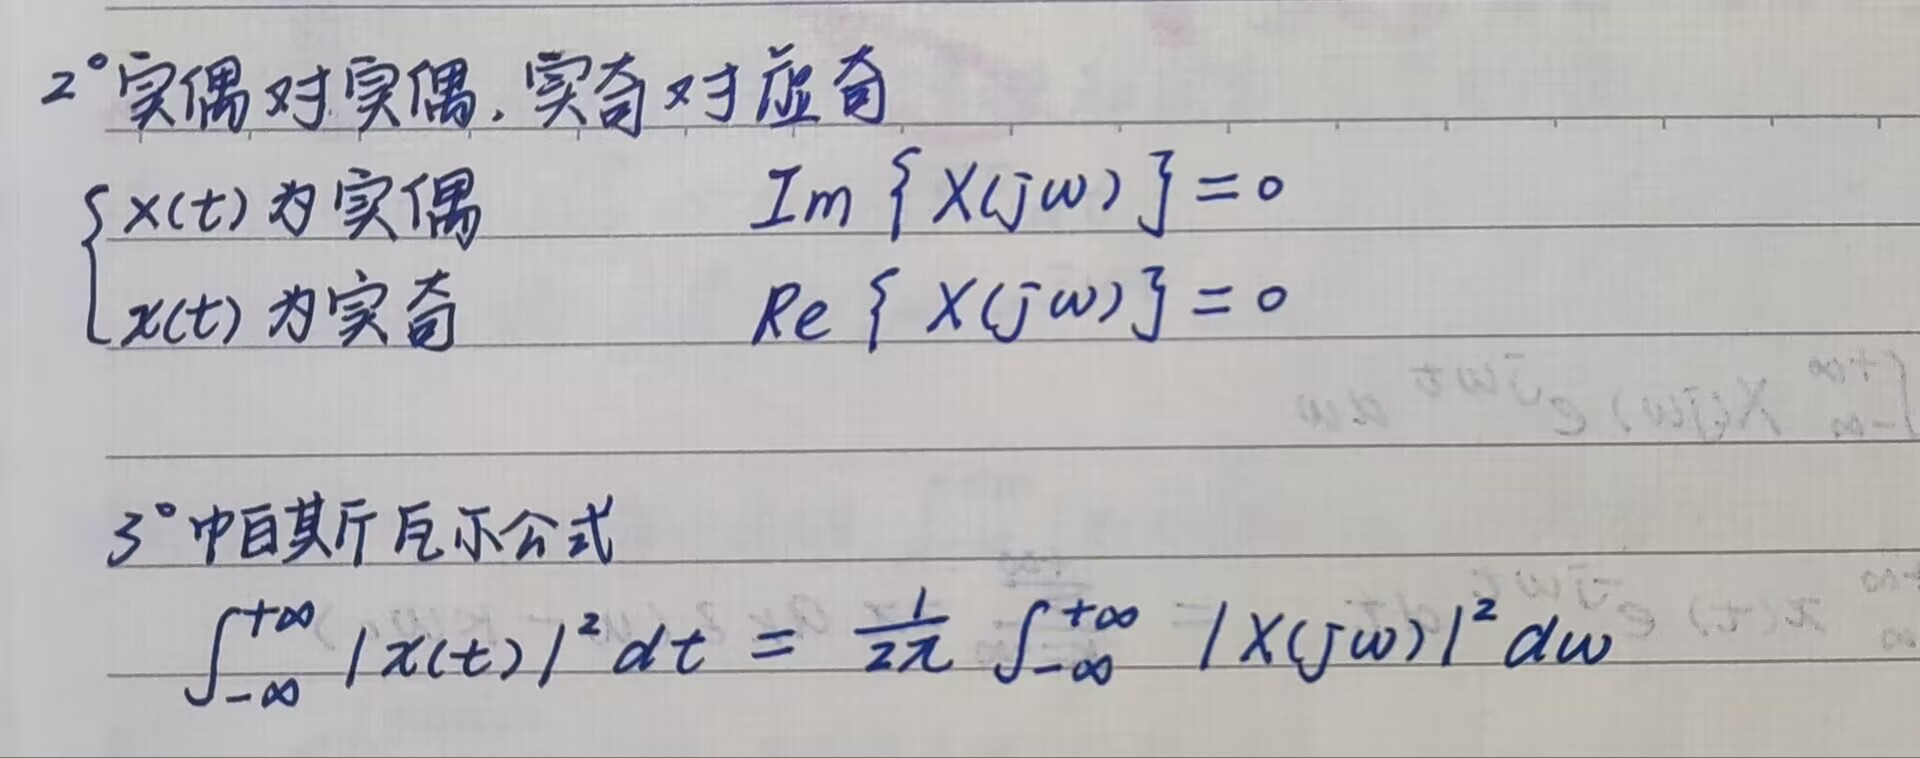 2° 实偶对实偶，实奇对虚奇
{ x(t) 为实偶 Im { X(jω) } = 0
x(t) 为实奇 Re { X(jω) } = 0
3° 帕斯瓦尔公式
∫_{-∞}^{+∞} |x(t)|² dt = 1/2π ∫_{-∞}^{+∞} |X(jω)|² dω